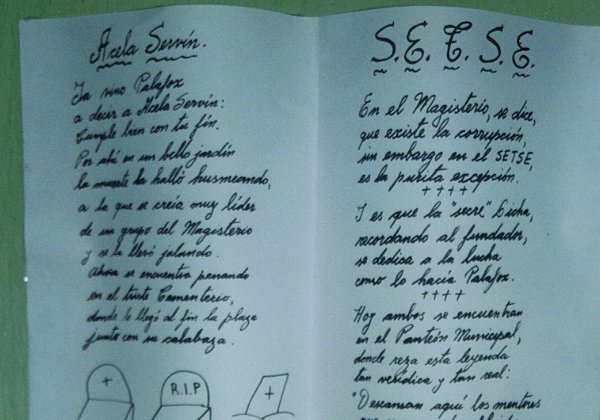 Acela Servín.
Ya vino Palafox
a decir a Acela Servín:
Cumple bien con tu fin.
Por ahí en un bello jardín
la muerte la halló husmeando,
a la que se creía muy líder
de un grupo del Magisterio
y se la llevó jalando.
Ahora se encuentra penando
en el triste Cementerio,
donde le llegó al fin la plaza
junto con su calabaza.
R.I.P
S.E.T.S.E.
En el Magisterio, se dice,
que existe la corrupción,
sin embargo en el SETSE,
es la purita excepción.
++++
Y es que la "secre" Licha,
recordando al fundador,
se dedica a la lucha
como lo hacía Palafox.
++++
Hoy ambos se encuentran
en el Panteón Municipal,
donde reza esta leyenda
tan verídica y tan real:
"Descansan aquí los mentores